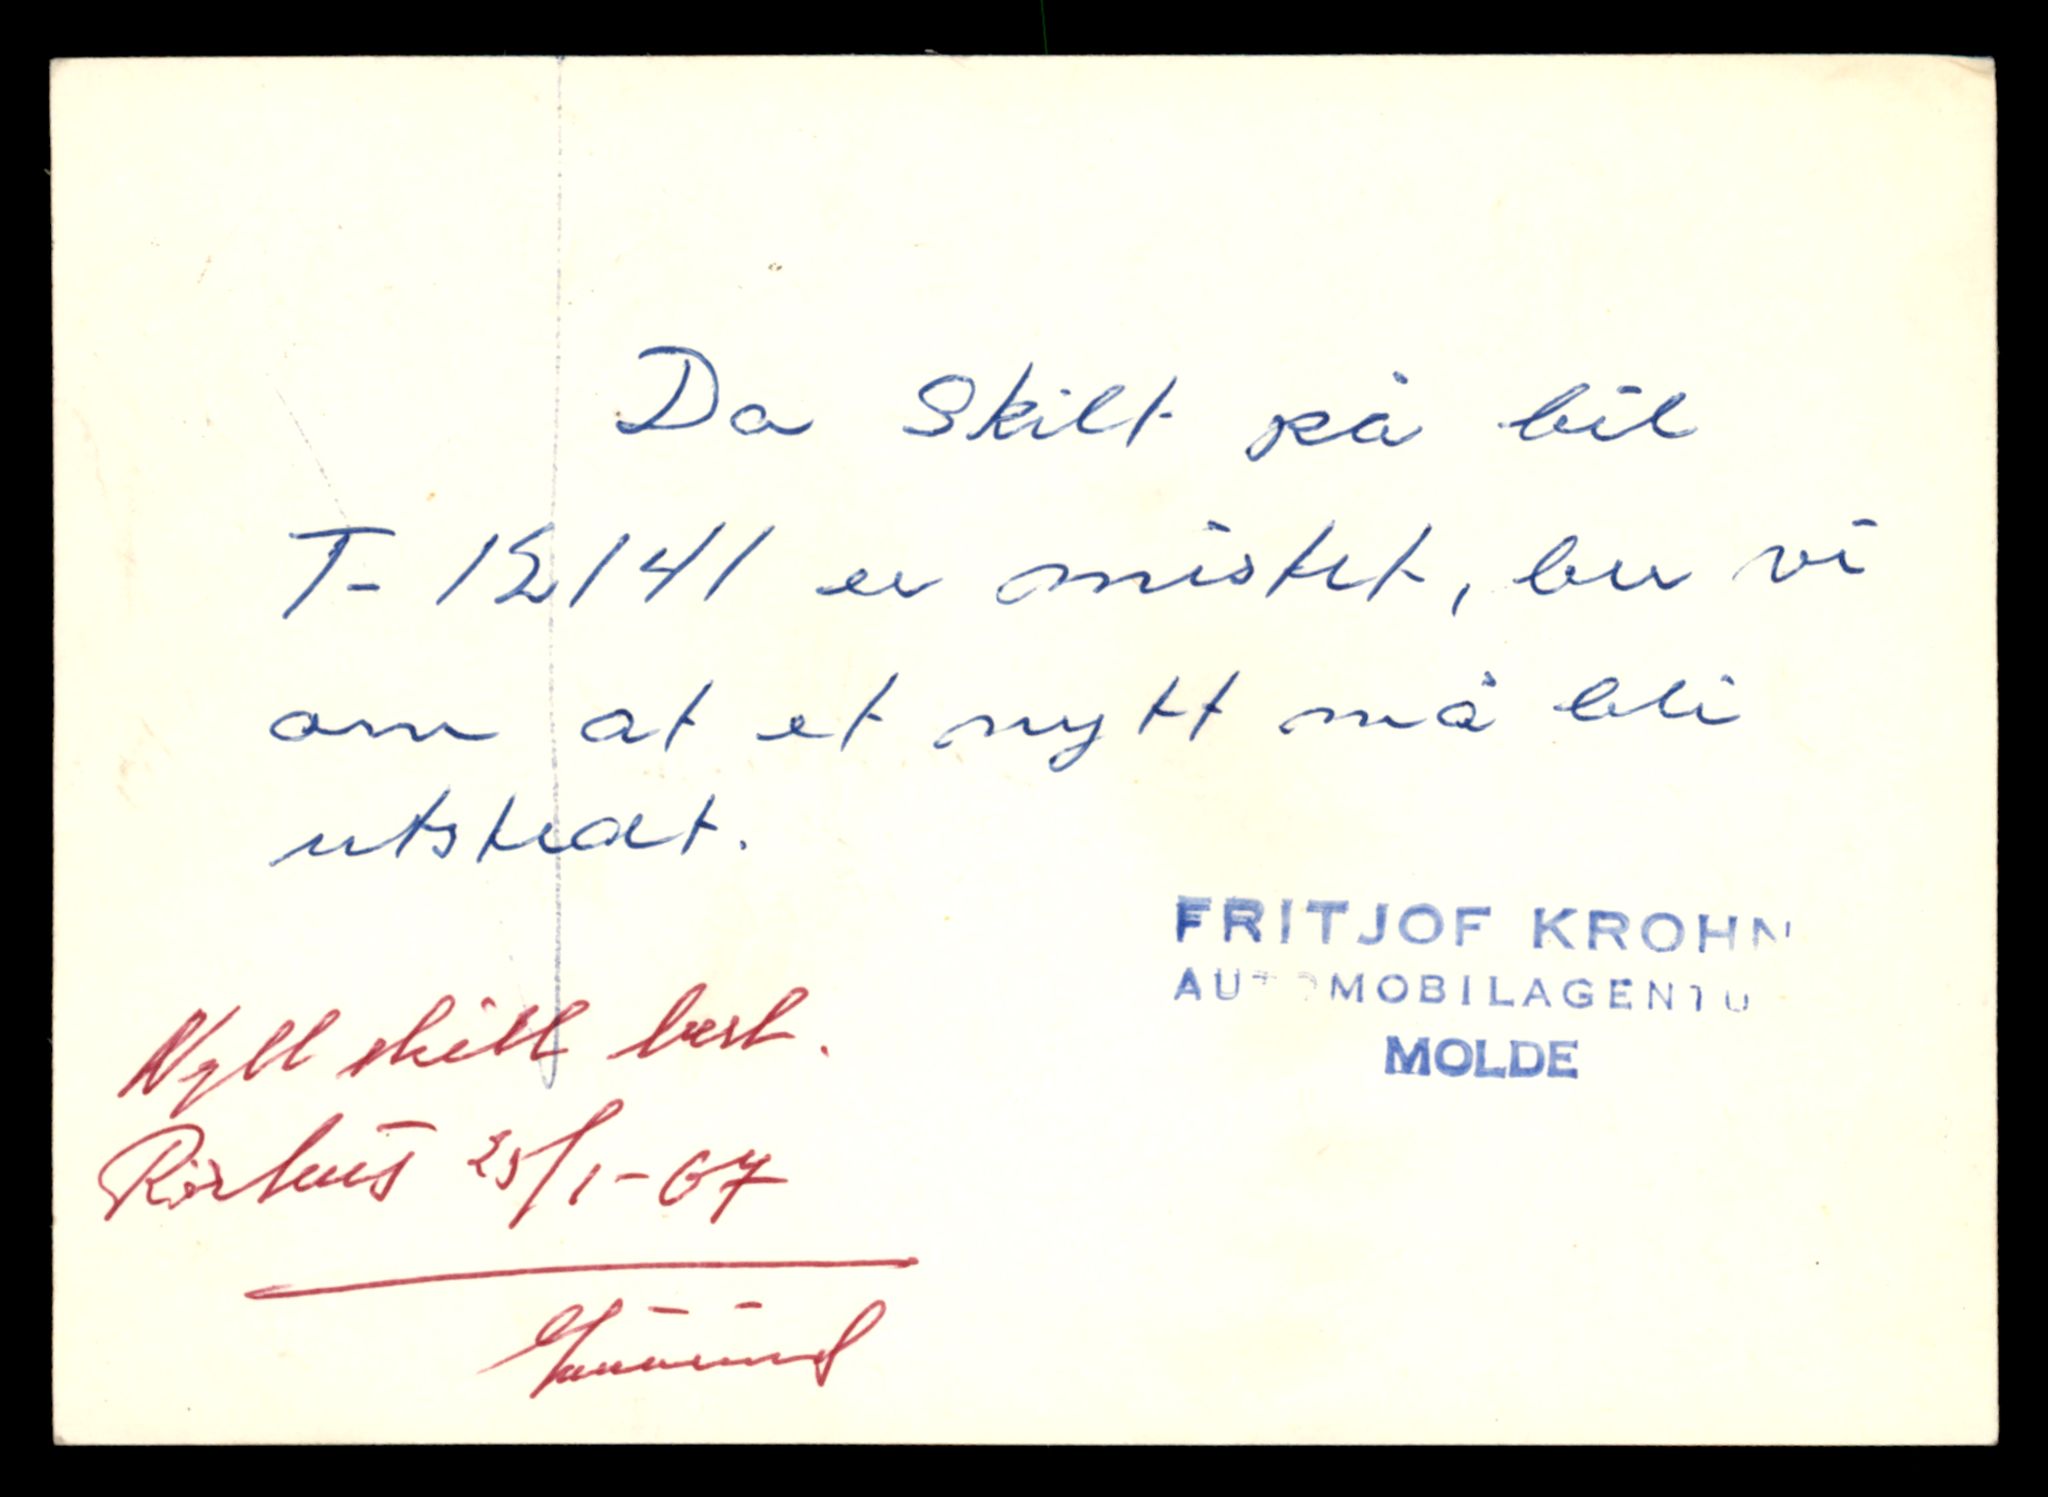 Da Skilt på bil
T- 12141 er mistet, ber vi
om at et nytt må bli
utstedt.
FRITJOF KROHN
AUTOMOBILAGENTU
MOLDE
Nytt skilt best.
25/1-67